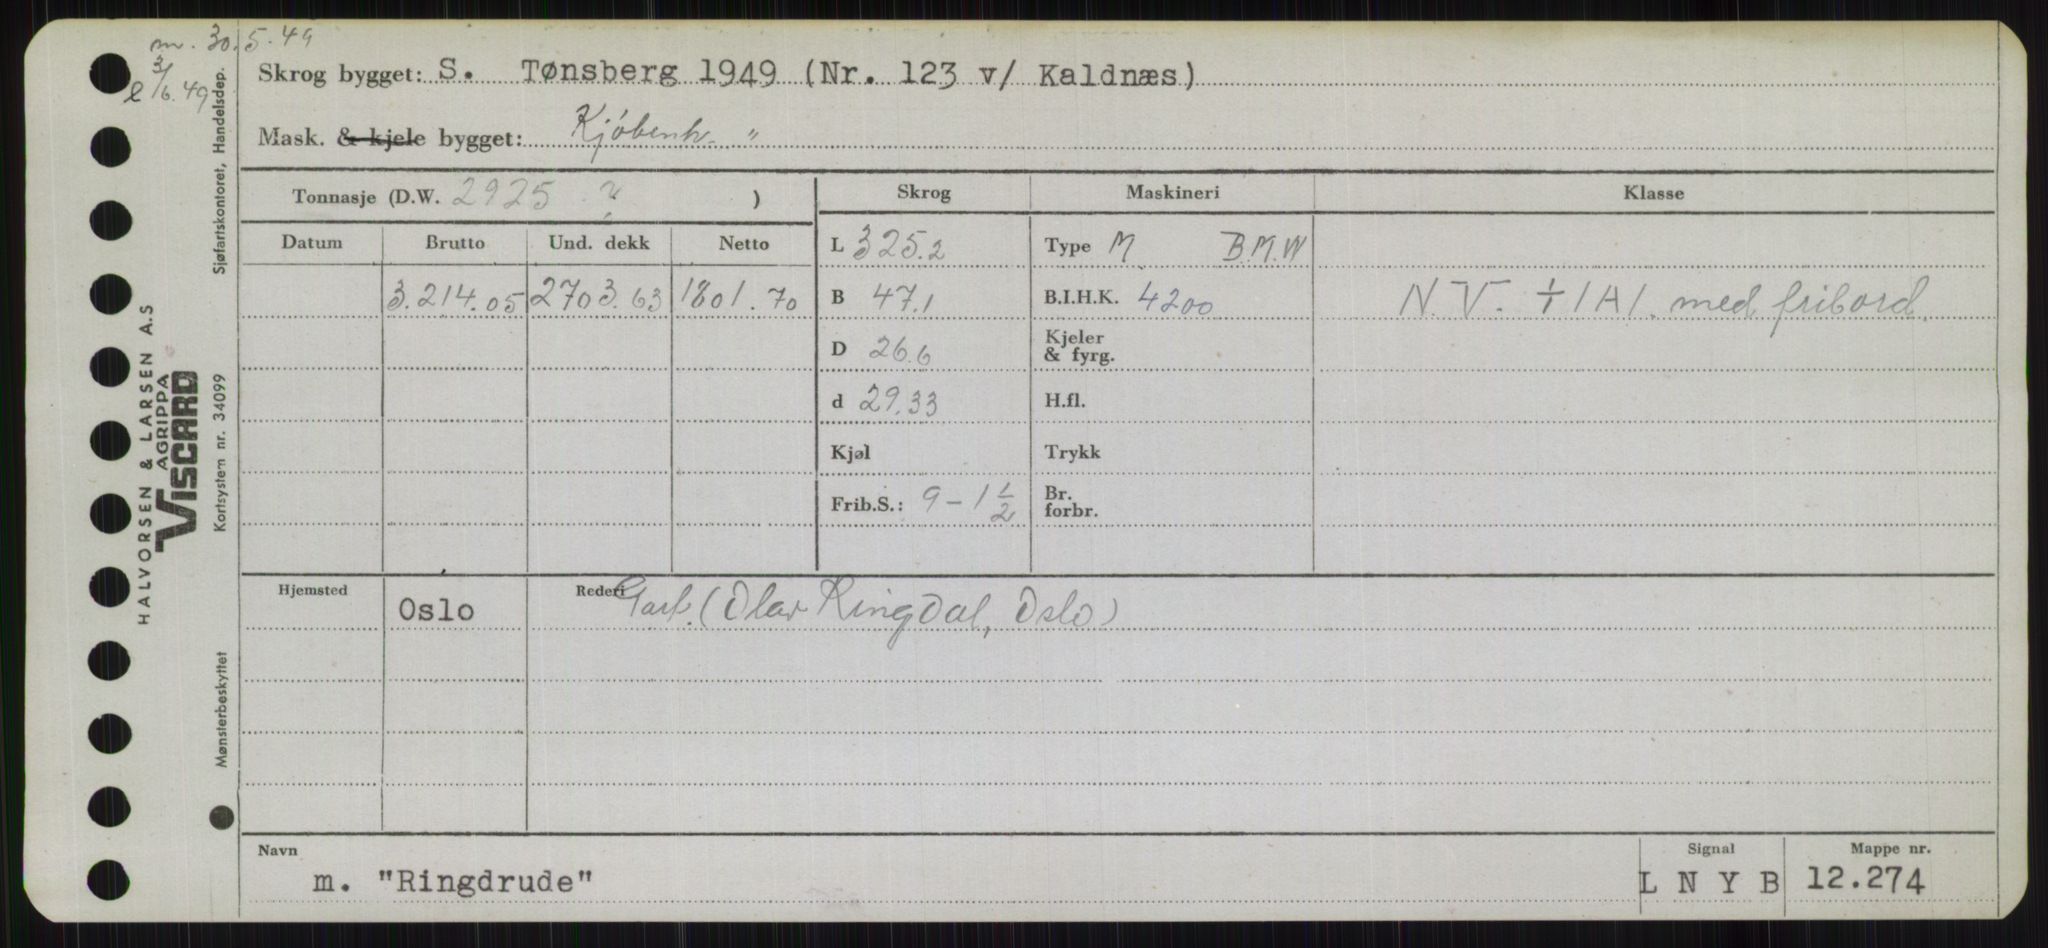 m. 30.5.49
l 3/6.49
Skrog bygget: S. Tønsberg 1949 (Nr. 123 v/ Kaldnæs)
Mask. & kjele bygget: Kjøbenh. "
Tonnasje (D.W. 2925 ? )
Skrog Maskineri Klasse
Datum Brutto Und. dekk Netto
L 325.2 Type M B.M.W
3.214.05 2703.63 1801.70
B 47.1 B.I.H.K. 4200 N.V. + 1A1. med fribord.
D 26.6 Kjeler & fyrg.
d 29.33 H.fl.
Kjøl Trykk
Frib.S.: 9-1 1/2 Br. forbr.
Hjemsted Oslo Rederi (Olav Ringdal, Oslo)
Navn Signal Mappe nr.
m. "Ringdrude" L N Y B 12.274
HALVORSEN & LARSEN A.S
AGRIPPA
VISCARD
Sjøfartskontoret, Handelsdep.
Kortsystem nr. 34099
Mønsterbeskyttet